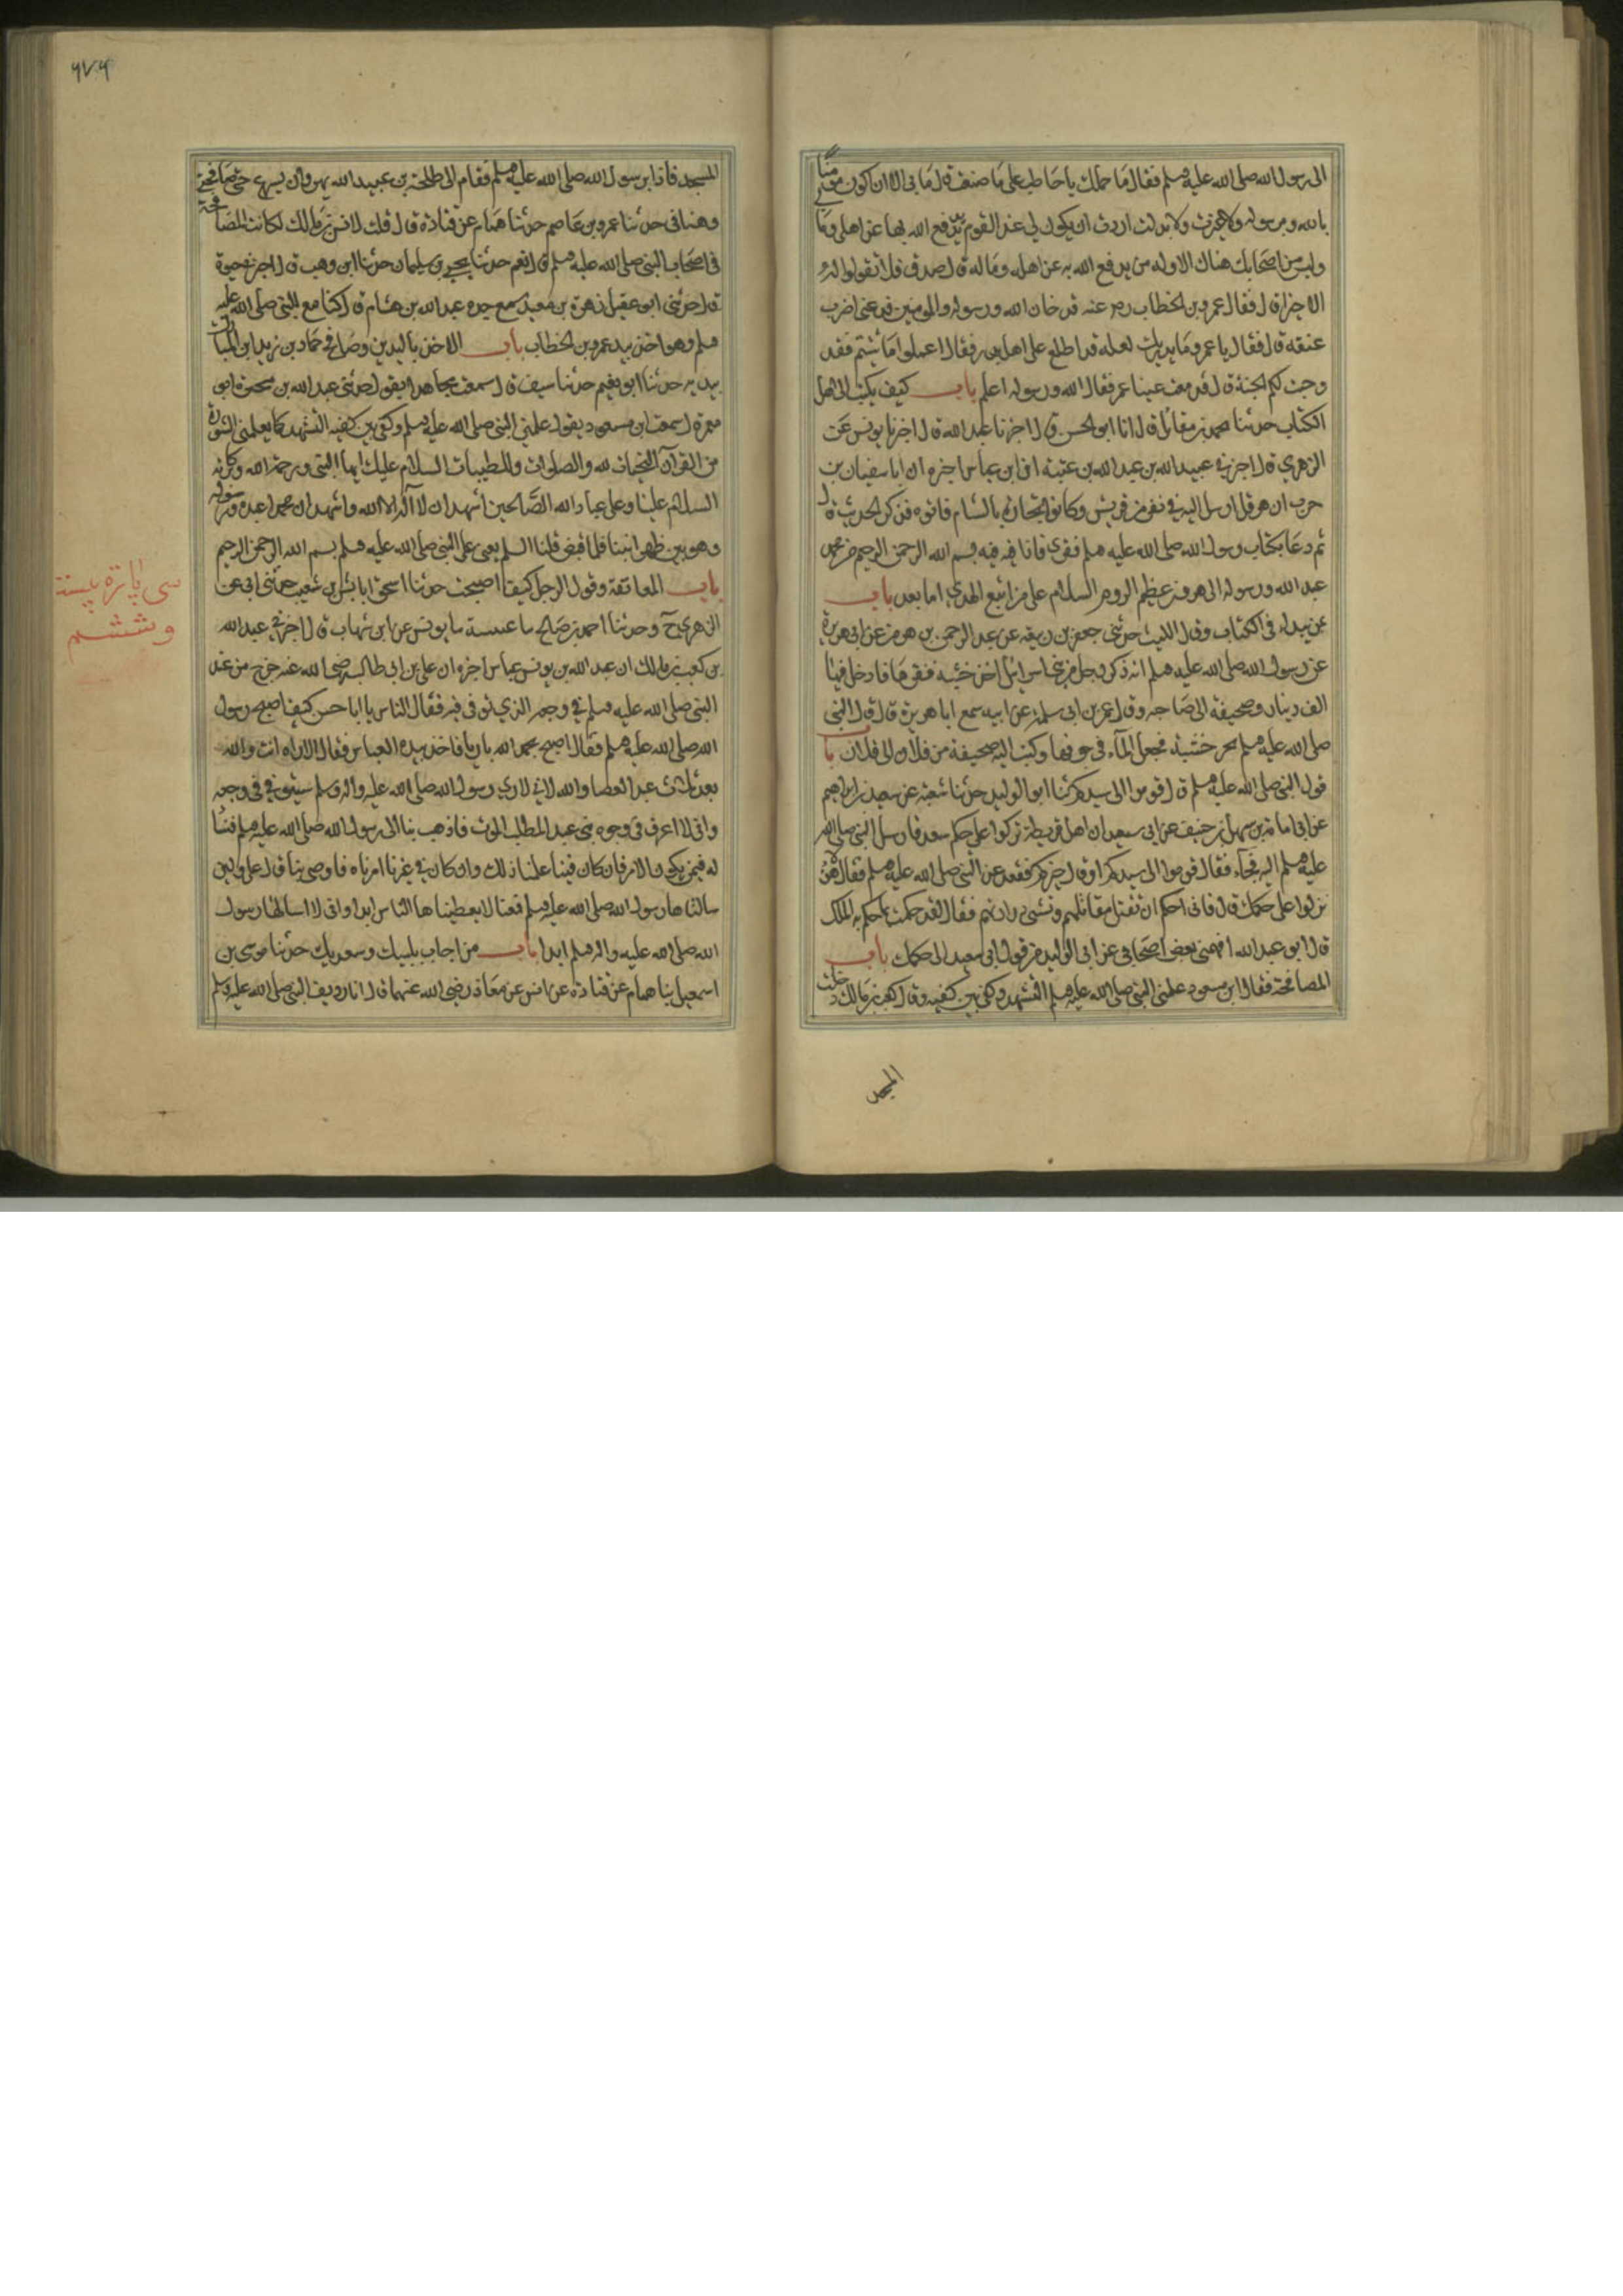 الى رسول الله صلى الله عليه وسلم فقال ما حملك يا حاطب على ما صنعت قال ما بى الا ان اكون مؤمنا
بالله وبرسوله ولا غيرت ولا بدلت اردت ان يكون لى عند القوم يد يدفع الله بها عن اهلى وما
وليس من اصحابك هناك الا وله من يدفع الله به عن اهله وماله قال صدق فلا تقولوا له
الا خيرا قال فقال عمر بن الخطاب رض عنه قد خان الله ورسوله والمومنين فدعنى اضرب
عنقه قال فقال يا عمر وما يدريك لعله قد اطلع على اهل بدر فقال اعملوا ما شئتم فقد
وجبت لكم الجنة قال فدمعت عينا عمر فقال الله ورسوله اعلم باب كيف يكتب الى اهل
الكتاب حدثنا محمد بن مقاتل قال انا ابو الحسن قال اخبرنا عبد الله قال اخبرنا يونس عن
الزهري قال اخبرنى عبيد الله بن عبد الله بن عتبة ان ابن عباس اخبره ان ابا سفيان بن
حرب ان هرقل ارسل اليه فى نفر من قريش وكانوا تجارا بالشام فاتوه فذكر الحديث قال
ثم دعا بكتاب رسول الله صلى الله عليه وسلم فقرئ فاذا فيه بسم الله الرحمن الرحيم من محمد
عبد الله ورسوله الى هرقل عظيم الروم السلام على من اتبع الهدي اما بعد باب
بمن يبداء فى الكتاب وقال الليث حدثنى جعفر بن ربيعة عن عبد الرحمن بن هرمز عن ابى هريرة
عن رسول الله صلى الله عليه وسلم انه ذكر رجل من بنى اسرائيل اخذ خشبة فنقرها فادخل فيها
الف دينار وصحيفة الى صاحبه وقال عمر بن ابى سلمة عن ابيه سمع ابا هريرة قال قال النبى
صلى الله عليه وسلم نجر خشبة فجعل المآء فى جوفها وكتب اليه صحيفة من فلان الى فلان باب
قول النبى صلى الله عليه وسلم قوموا الى سيدكم حدثنا ابو الوليد حدثنا شعبة عن سعد بن ابراهيم
عن ابى امامة بن سهل بن حنيف عن ابى سعيد ان اهل قريظة نزلوا على حكم سعد فارسل النبى صلى الله
عليه وسلم اليه فجآء فقال قوموا الى سيدكم او قال خيركم فقعد عند النبى صلى الله عليه وسلم فقال هؤلاء
نزلوا على حكمك قال فانى احكم ان تقتل مقاتلهم وتسبى ذراريهم فقال لقد حكمت بما حكم به الملك
قال ابو عبد الله افهمنى بعض اصحابى عن ابى الوليد من قول ابى سعيد الى حكمك باب
المصافحة فقال ابن مسعود علمنى النبى صلى الله عليه وسلم التشهد وكفى بين كفيه وقال كعب بن مالك دخلت
المسجد
٦٧٦
المسجد فاذا برسول الله صلى الله عليه وسلم فقام الى طلحة بن عبيد الله يهرول حتى صافحنى
وهنانى حدثنا عمرو بن عاصم حدثنا همام عن قتادة قال قلت لانس بن مالك اكانت المصافحة
فى اصحاب النبى صلى الله عليه وسلم قال نعم حدثنا يحيى بن سليمان حدثنا ابن وهب قال اخبرنى حيوة
قال حدثنى ابو عقيل زهرة بن معبد سمع جده عبد الله بن هشام قال كنا مع النبى صلى الله عليه
وسلم وهو اخذ بيد عمر بن الخطاب باب الاخذ باليدين وصافح حماد بن زيد ابن المبارك
بيديه حدثنا ابو نعيم حدثنا سيف قال سمعت مجاهدا يقول حدثنى عبد الله بن سخبرة ابو
معمر قال سمعت ابن مسعود يقول علمنى النبى صلى الله عليه وسلم وكفى بين كفيه التشهد كما يعلمنى السورة
من القرآن التحيات لله والصلوات والطيبات السلام عليك ايها النبى ورحمة الله وبركاته
السلام علينا وعلى عباد الله الصالحين اشهد ان لا اله الا الله واشهد ان محمدا عبده ورسوله
وهو بين ظهرانينا فلما قبض قلنا السلم يعنى على النبى صلى الله عليه وسلم بسم الله الرحمن الرحيم
باب المعانقة وقول الرجل كيف اصبحت حدثنا اسحق انا بشر بن شعيب حدثنى ابى عن
الزهرى ح وحدثنا احمد بن صالح نا عنبسة نا يونس عن ابن شهاب قال اخبرنى عبد الله
بن كعب بن مالك ان عبد الله بن عباس اخبره ان على بن ابى طالب رضى الله عنه خرج من عند
النبى صلى الله عليه وسلم فى وجعه الذي توفى فيه فقال الناس يا ابا حسن كيف اصبح رسول
الله صلى الله عليه وسلم فقال اصبح بحمد الله بارئا فاخذ بيده العباس فقال الا تراه انت والله
بعد ثلاث عبد العصا والله لانى لاري رسول الله صلى الله عليه واله وسلم سيتوفى فى وجعه
وانى لا اعرف فى وجوه بنى عبد المطلب الموت فاذهب بنا الى رسول الله صلى الله عليه وسلم فنسأله
فيمن يكون الامر فان كان فينا علمنا ذلك وان كان فى غيرنا امرناه فاوصى بنا قال على ولئن
سالناها رسول الله صلى الله عليه وسلم فمنعنا لا يعطيناها الناس ابدا وانى لا اسالها رسول
الله صلى الله عليه واله وسلم ابدا باب من اجاب بلبيك وسعديك حدثنا موسى بن
اسمعيل نا همام عن قتادة عن انس عن معاذ رضى الله عنهما قال انا رديف النبى صلى الله عليه وسلم
سى پاره بيست
و ششم